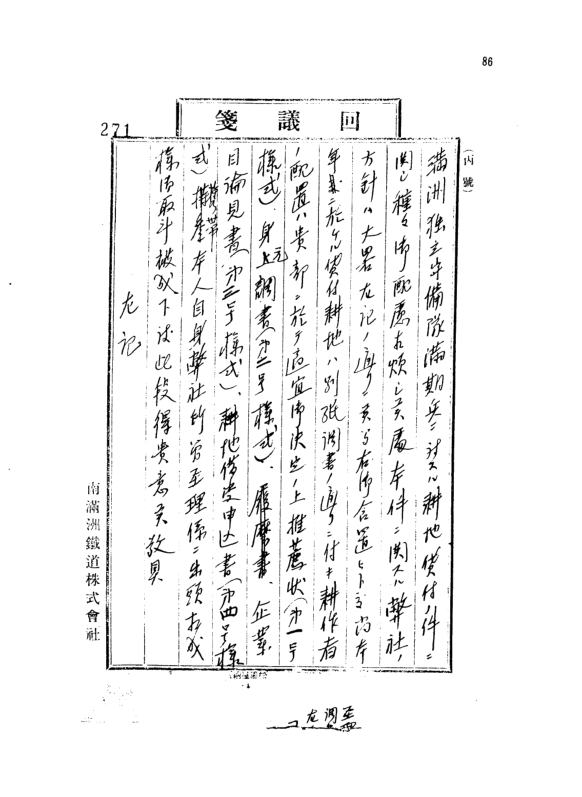 86
271
回議箋
(丙號)
満洲独立守備隊満期兵ニ対スル耕地貸付ノ件ニ
関シ種々御配慮相煩シ候處本件ニ関スル弊社ノ
方針ハ大畧左記ノ通リニ候間右御含置被下度尚本
年度ニ於ケル貸付耕地ハ別紙調書ノ通リニ付キ耕作者
ノ配置ハ貴部ニ於テ適宜御決定ノ上推薦状(第一号
様式)、身元調書(第二号様式)、履歴書、企業
目論見書(第三号様式)、耕地借受申込書(第四号様
式)携帯本人自身弊社地方 係ニ出頭相成
様御取斗被成下度此段得貴意候敬具
左記
南滿洲鐵道株式會社